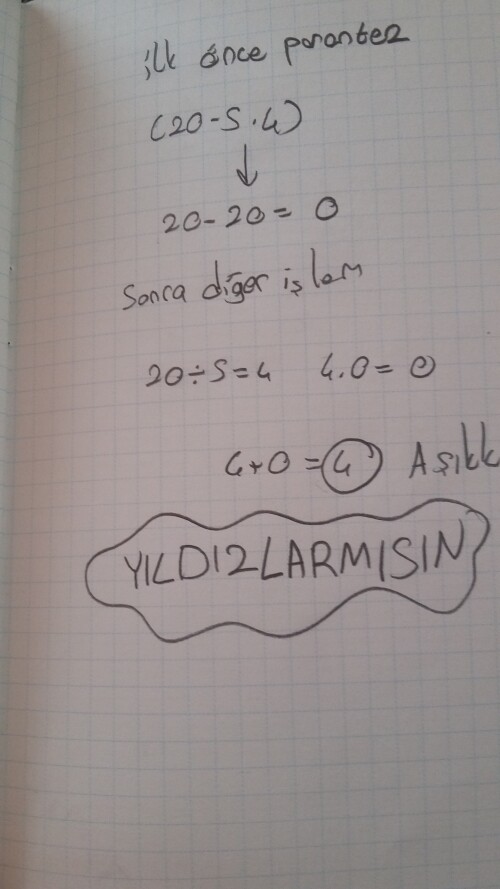 ilk önce parantez
(20-5.4)
↓
20-20= 0
Sonra diğer işlem
20÷5=4 4.0= 0
4+0=4 A şıkk
YILDIZLARMISIN